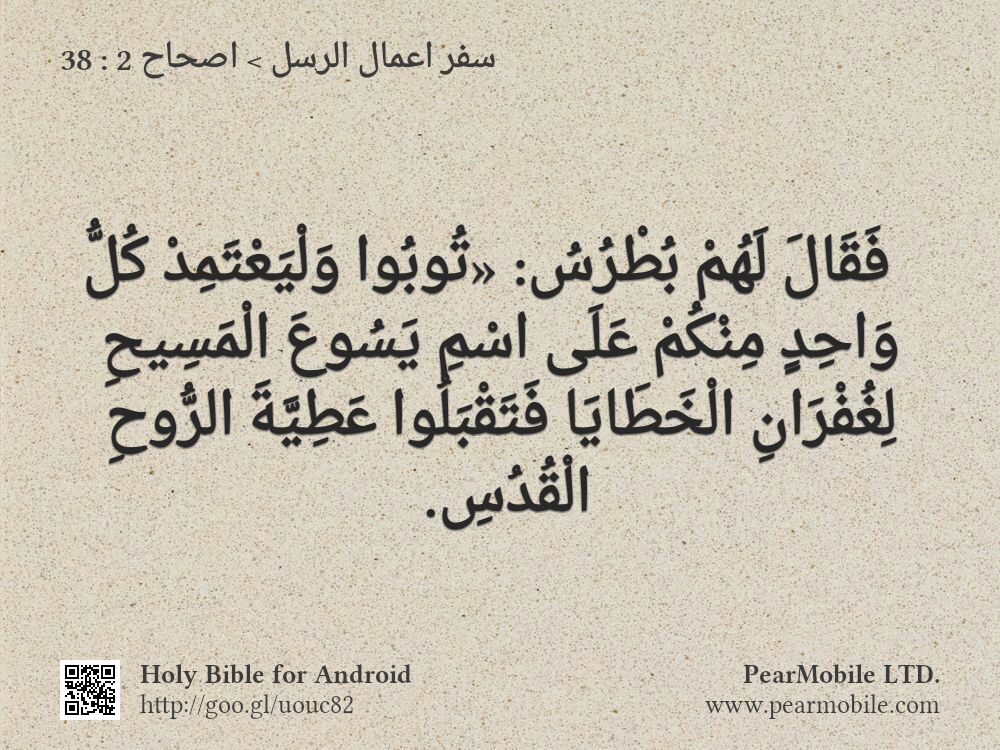 سفر اعمال الرسل > اصحاح 2 : 38
فَقَالَ لَهُمْ بُطْرُسُ: «تُوبُوا وَلْيَعْتَمِدْ كُلُّ
وَاحِدٍ مِنْكُمْ عَلَى اسْمِ يَسُوعَ الْمَسِيحِ
لِغُفْرَانِ الْخَطَايَا فَتَقْبَلُوا عَطِيَّةَ الرُّوحِ
الْقُدُسِ.
Holy Bible for Android
http://goo.gl/uouc82
PearMobile LTD.
www.pearmobile.com